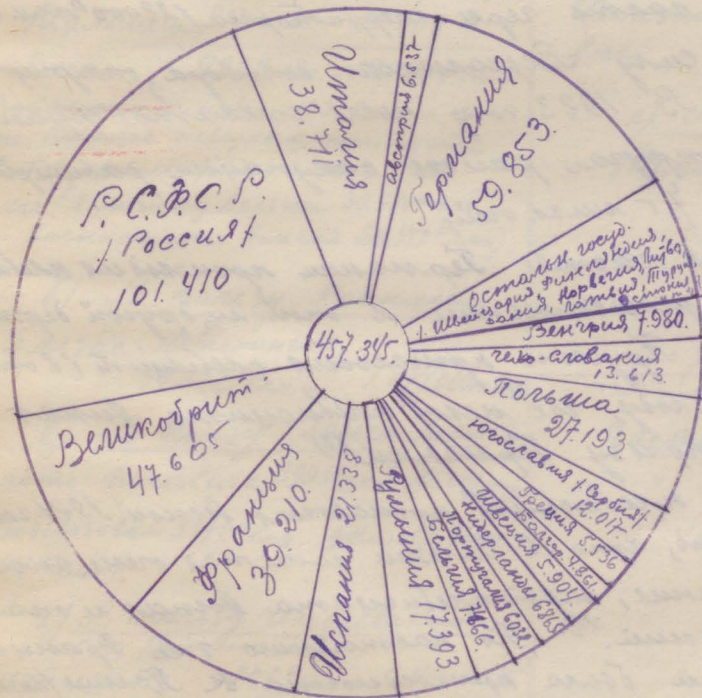 457.345.
Р.С.Ф.С.Р.
/ Россия /
101.410
Италия
38.711
Австрия 6.537
Германия
59.853.
Остальн. госуд.
/ Швейцария, Финляндия,
Дания, Норвегия, Литва,
Латвия, Турция,
Эстония
Венгрия 7.980.
Чехо-Словакия
13.613.
Польша
27.193
Югославия / Сербия /
12.017.
Греция 5.536
Болгар. 4.861.
Швеция 5.904
Нидерланды 6865
Португалия 6032.
Бельгия 7.466.
Румыния 17.393
Испания 21.338
Франция
39.210.
Великобрит.
47.605